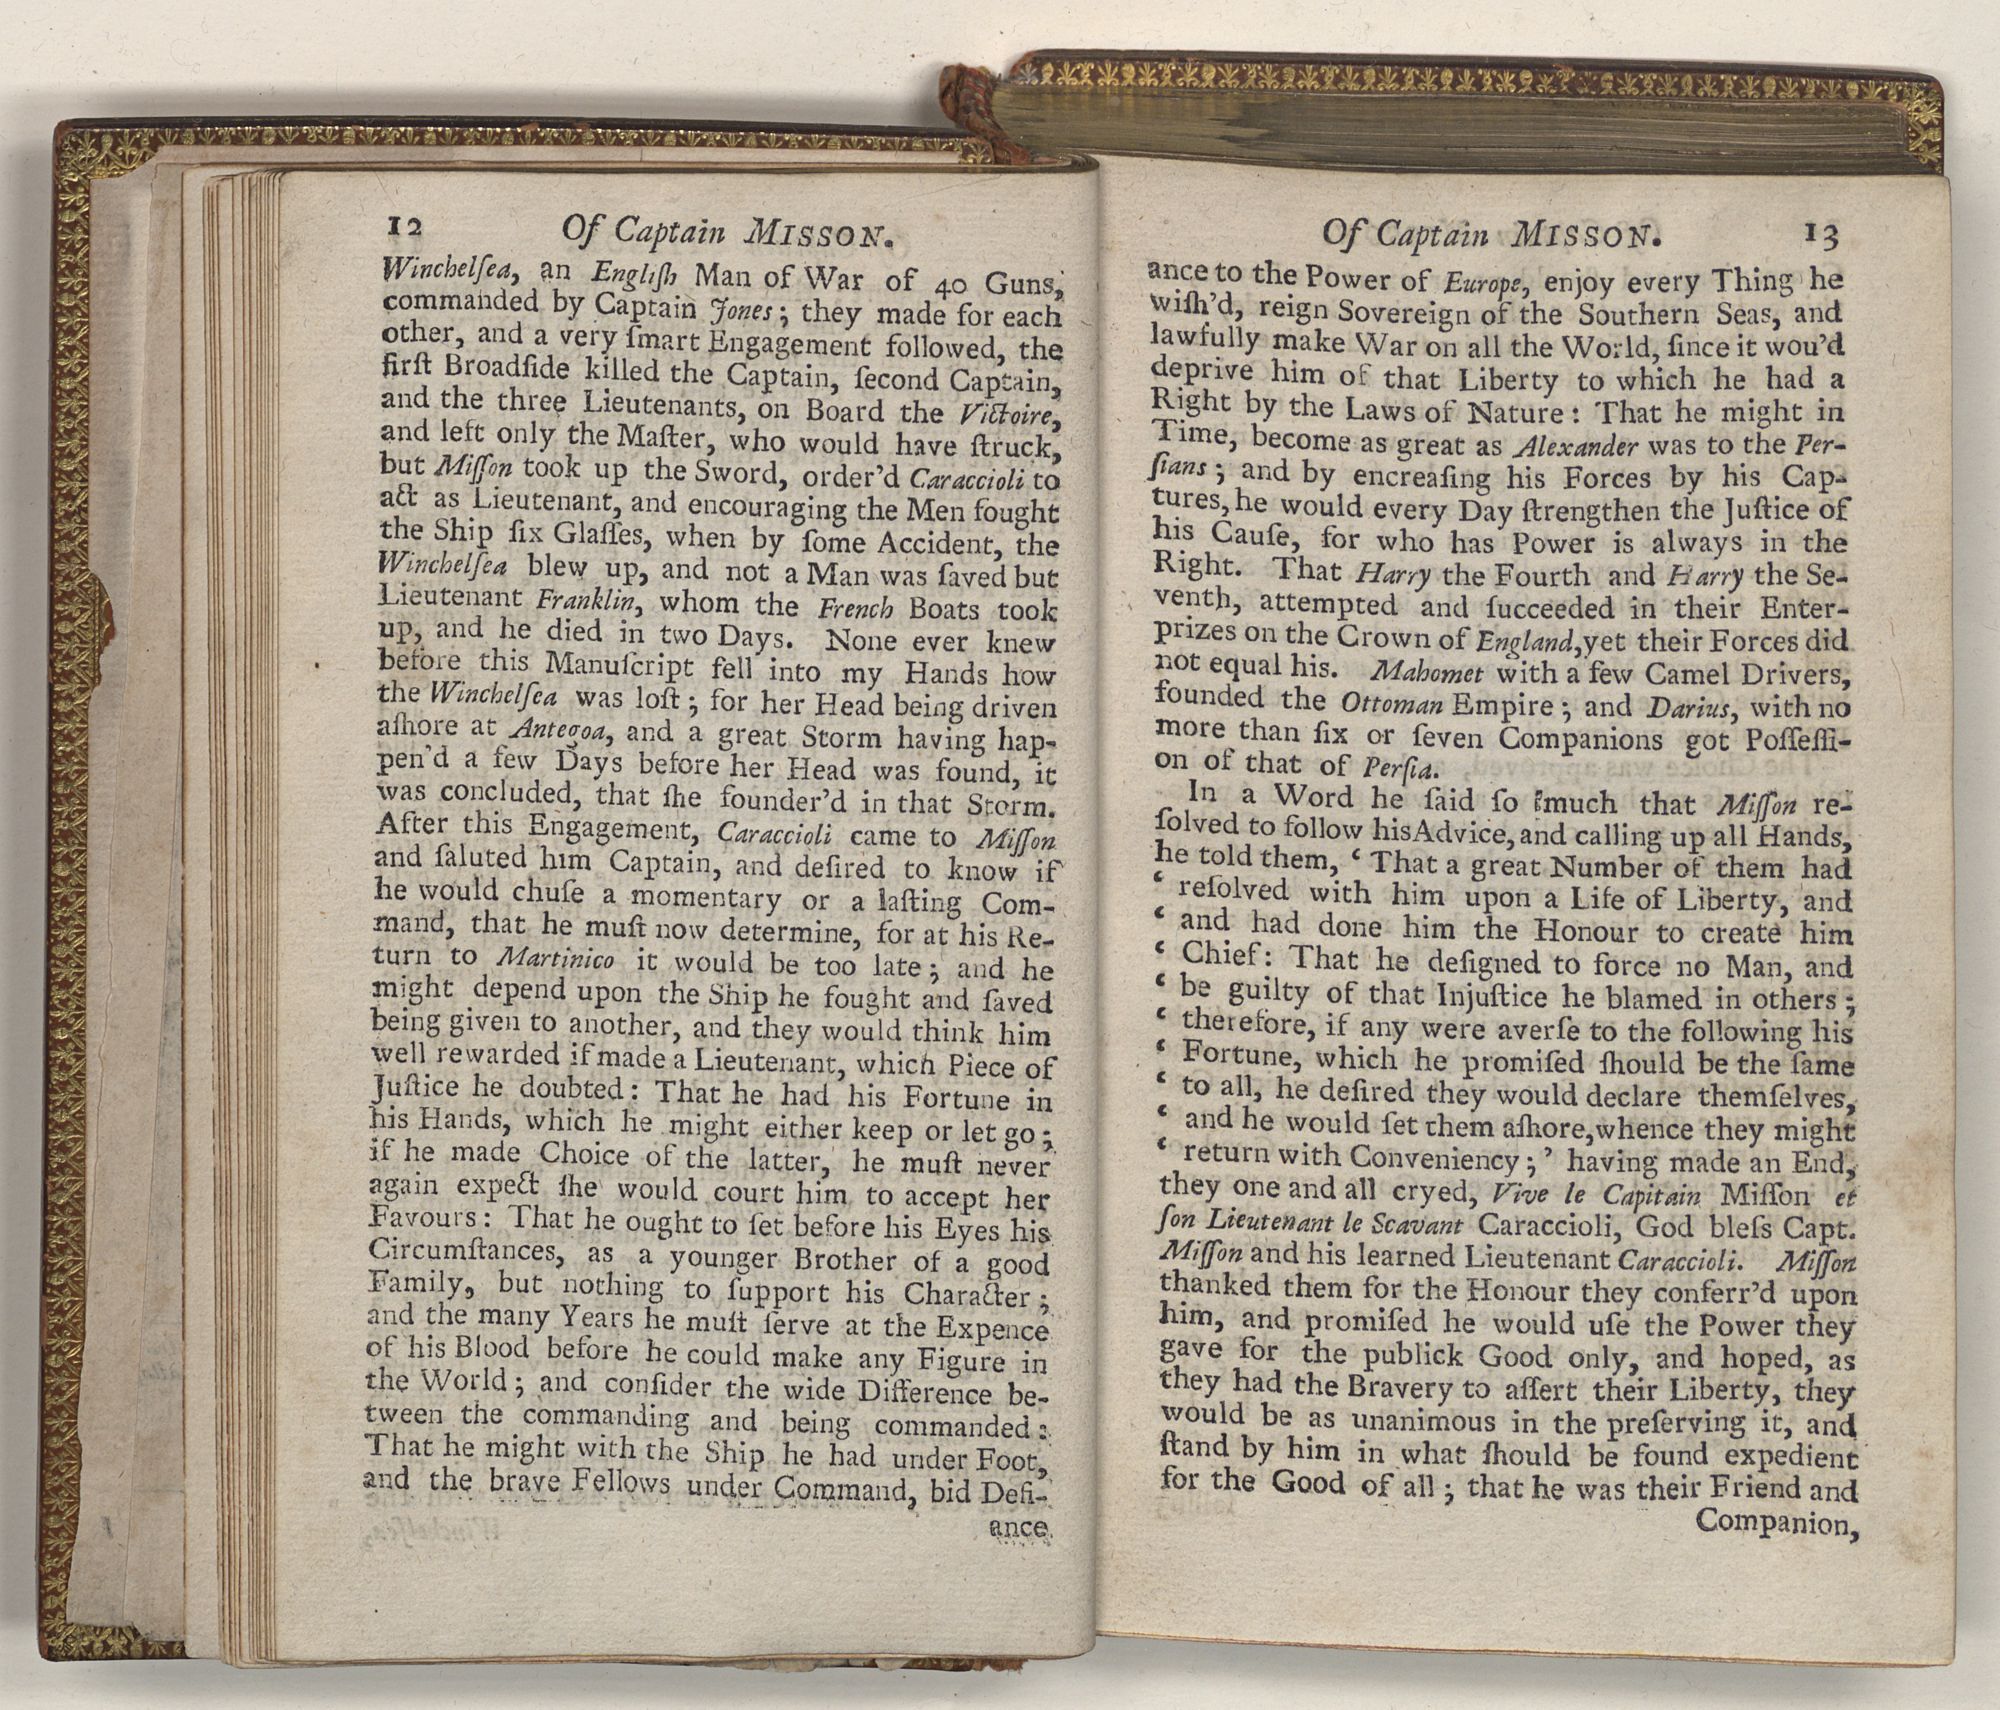 12 Of Captain MISSON.
Winchelſea, an Engliſh Man of War of 40 Guns,
commanded by Captain Jones; they made for each
other, and a very ſmart Engagement followed, the
firſt Broadſide killed the Captain, ſecond Captain,
and the three Lieutenants, on Board the Victoire,
and left only the Maſter, who would have ſtruck,
but Miſſon took up the Sword, order'd Caraccioli to
act as Lieutenant, and encouraging the Men fought
the Ship ſix Glaſſes, when by ſome Accident, the
Winchelſea blew up, and not a Man was ſaved but
Lieutenant Franklin, whom the French Boats took
up, and he died in two Days. None ever knew
before this Manuſcript fell into my Hands how
the Winchelſea was loſt; for her Head being driven
aſhore at Antegoa, and a great Storm having hap-
pen'd a few Days before her Head was found, it
was concluded, that ſhe founder'd in that Storm.
After this Engagement, Caraccioli came to Miſſon
and ſaluted him Captain, and deſired to know if
he would chuſe a momentary or a laſting Com-
mand, that he muſt now determine, for at his Re-
turn to Martinico it would be too late; and he
might depend upon the Ship he fought and ſaved
being given to another, and they would think him
well rewarded if made a Lieutenant, which Piece of
Juſtice he doubted: That he had his Fortune in
his Hands, which he might either keep or let go;
if he made Choice of the latter, he muſt never
again expect ſhe would court him to accept her
Favours: That he ought to ſet before his Eyes his
Circumſtances, as a younger Brother of a good
Family, but nothing to ſupport his Character;
and the many Years he muſt ſerve at the Expence
of his Blood before he could make any Figure in
the World; and conſider the wide Difference be-
tween the commanding and being commanded:
That he might with the Ship he had under Foot,
and the brave Fellows under Command, bid Defi-
ance
Of Captain MISSON. 13
ance to the Power of Europe, enjoy every Thing he
wiſh'd, reign Sovereign of the Southern Seas, and
lawfully make War on all the World, ſince it wou'd
deprive him of that Liberty to which he had a
Right by the Laws of Nature: That he might in
Time, become as great as Alexander was to the Per-
ſians; and by encreaſing his Forces by his Cap-
tures, he would every Day ſtrengthen the Juſtice of
his Cauſe, for who has Power is always in the
Right. That Harry the Fourth and Harry the Se-
venth, attempted and ſucceeded in their Enter-
prizes on the Crown of England, yet their Forces did
not equal his. Mahomet with a few Camel Drivers,
founded the Ottoman Empire; and Darius, with no
more than ſix or ſeven Companions got Poſſeſſi-
on of that of Perſia.
In a Word he ſaid ſo much that Miſſon re-
ſolved to follow his Advice, and calling up all Hands,
he told them, ‘ That a great Number of them had
‘ reſolved with him upon a Life of Liberty, and
‘ and had done him the Honour to create him
‘ Chief: That he deſigned to force no Man, and
‘ be guilty of that Injuſtice he blamed in others;
‘ therefore, if any were averſe to the following his
‘ Fortune, which he promiſed ſhould be the ſame
‘ to all, he deſired they would declare themſelves,
‘ and he would ſet them aſhore, whence they might
‘ return with Conveniency;’ having made an End,
they one and all cryed, Vive le Capitain Miſſon et
ſon Lieutenant le Scavant Caraccioli, God bleſs Capt.
Miſſon and his learned Lieutenant Caraccioli. Miſſon
thanked them for the Honour they conferr'd upon
him, and promiſed he would uſe the Power they
gave for the publick Good only, and hoped, as
they had the Bravery to aſſert their Liberty, they
would be as unanimous in the preſerving it, and
ſtand by him in what ſhould be found expedient
for the Good of all; that he was their Friend and
Companion,